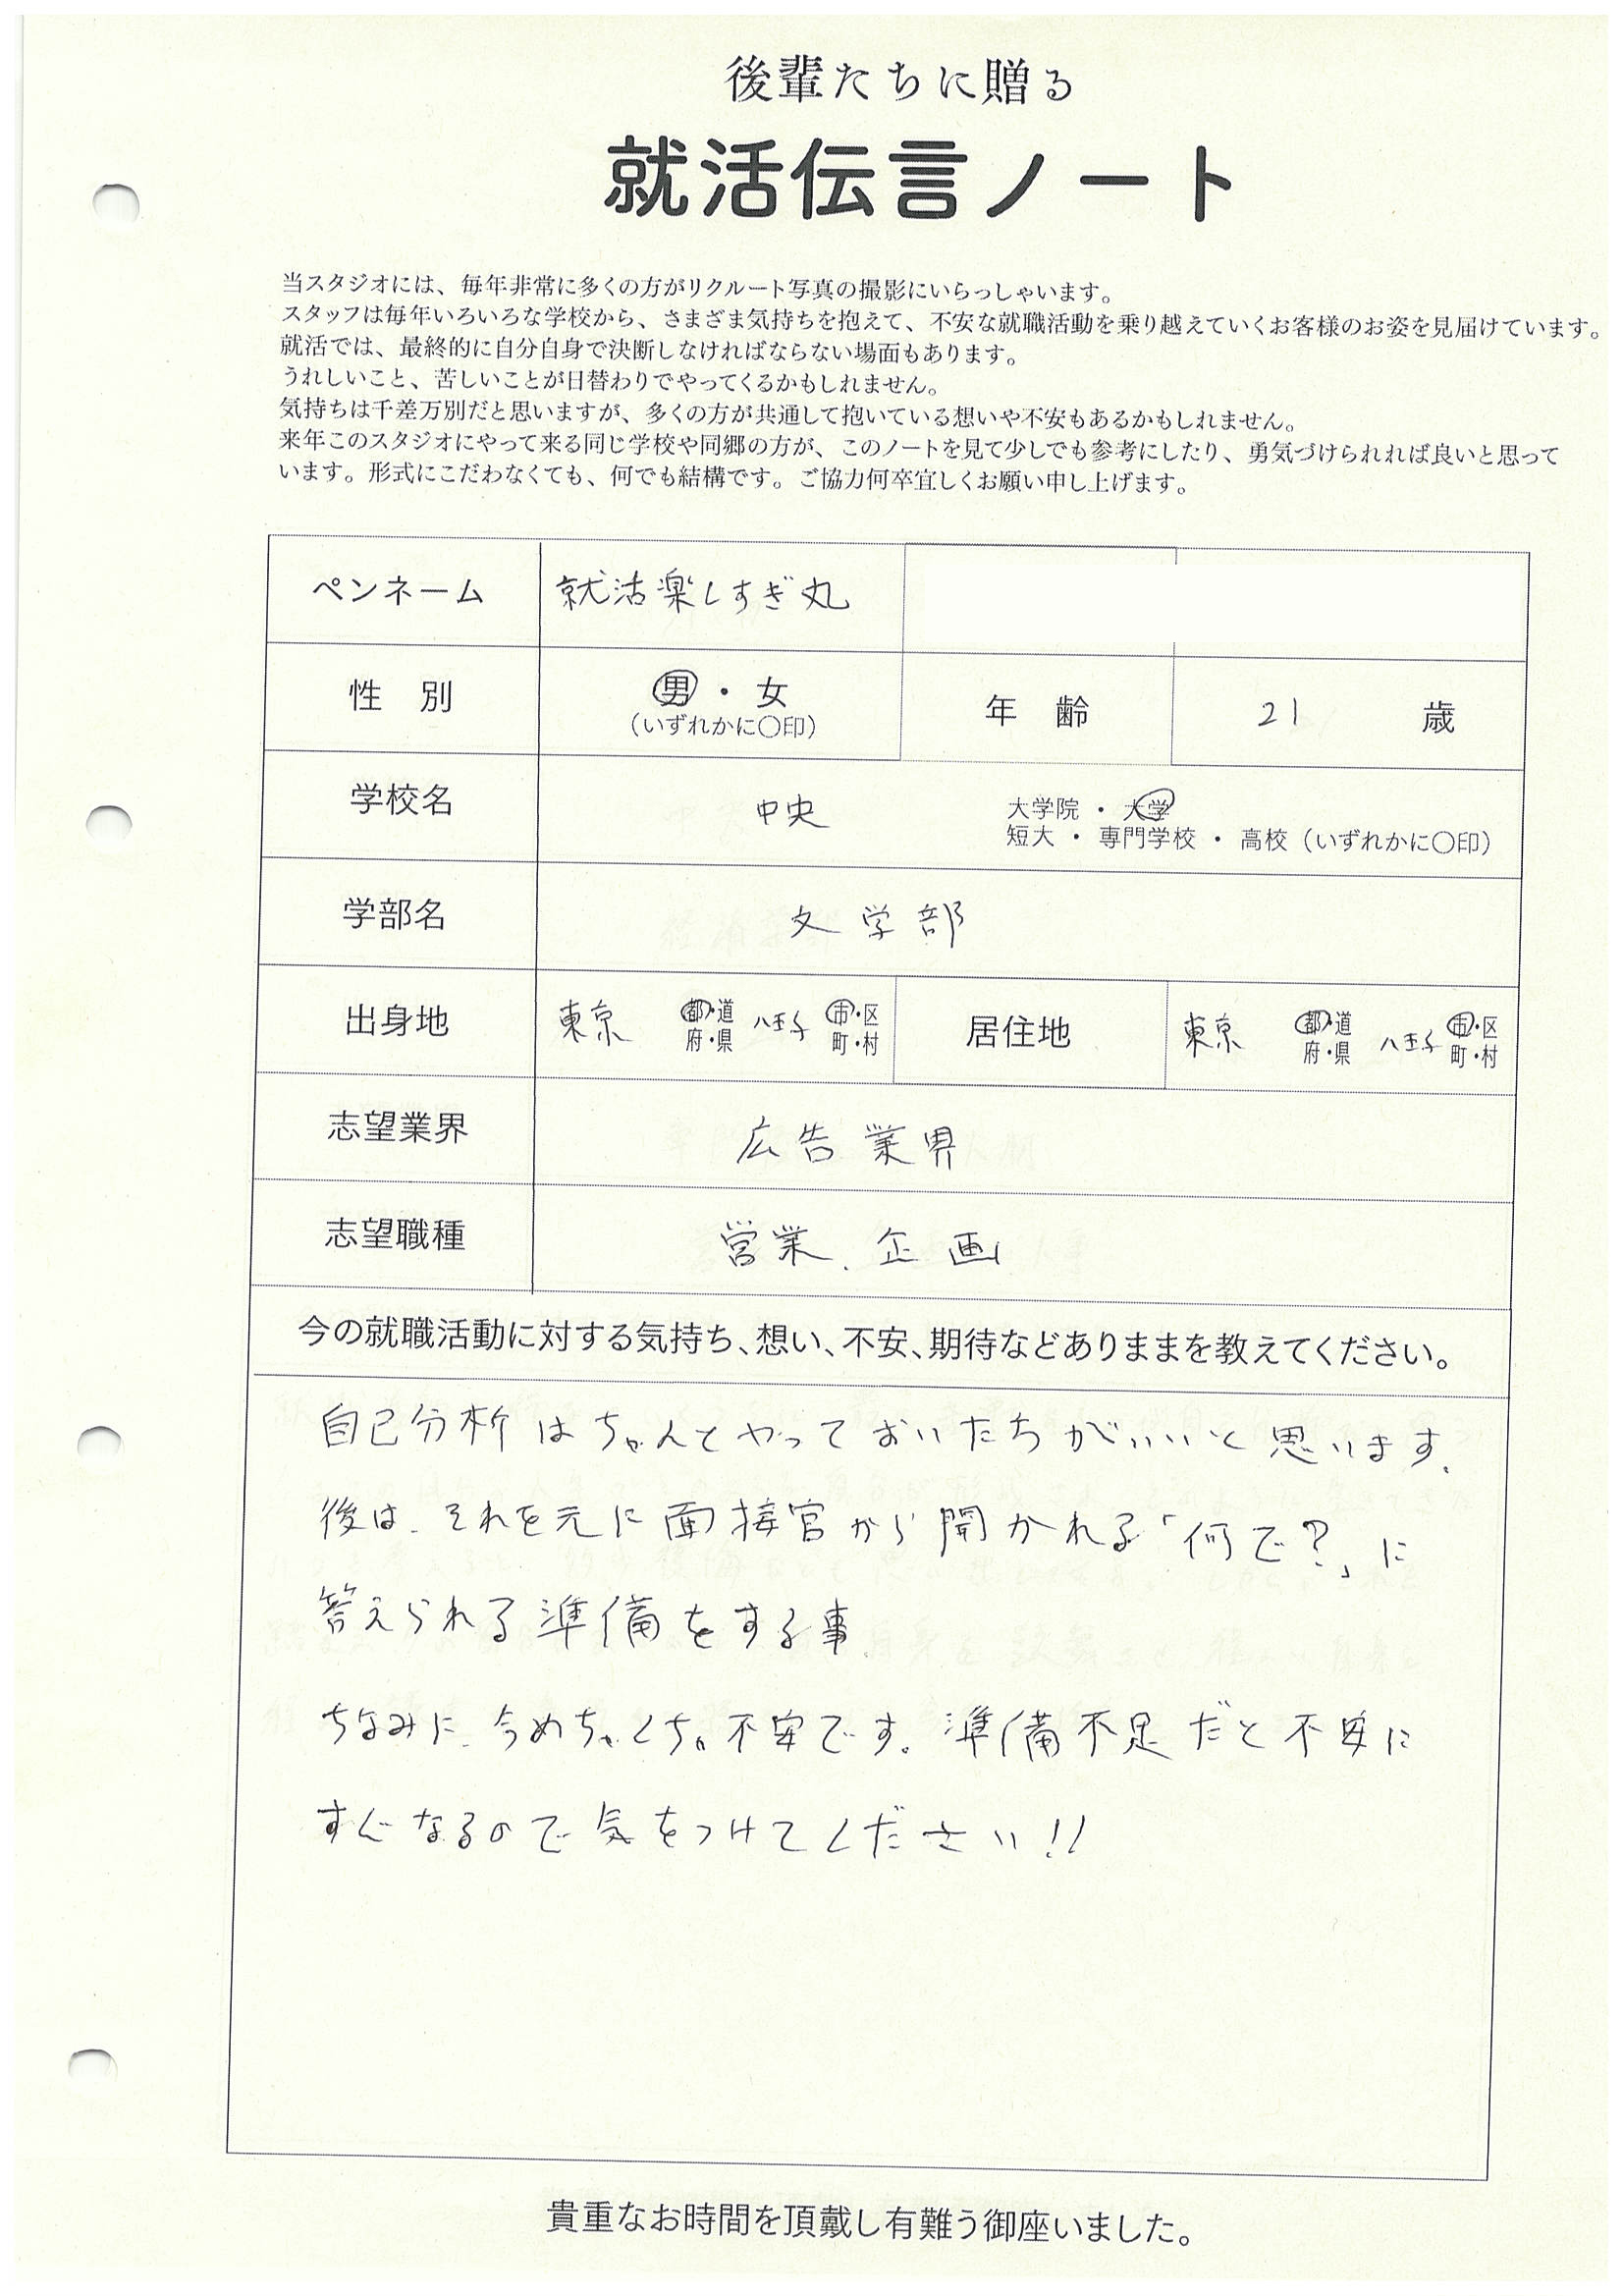 後輩たちに贈る
就活伝言ノート
当スタジオには、毎年非常に多くの方がリクルート写真の撮影にいらっしゃいます。
スタッフは毎年いろいろな学校から、さまざま気持ちを抱えて、不安な就職活動を乗り越えていくお客様のお姿を見届けています。
就活では、最終的に自分自身で決断しなければならない場面もあります。
うれしいこと、苦しいことが日替わりでやってくるかもしれません。
気持ちは千差万別だと思いますが、多くの方が共通して抱いている想いや不安もあるかもしれません。
来年このスタジオにやって来る同じ学校や同郷の方が、このノートを見て少しでも参考にしたり、勇気づけられれば良いと思って
います。形式にこだわなくても、何でも結構です。ご協力何卒宜しくお願い申し上げます。
ペンネーム 就活楽しすぎ丸
性 別 男・女 (いずれかに〇印) 年 齢 21 歳
学校名 中央 大学院 ・ 大学
短大 ・ 専門学校 ・ 高校(いずれかに〇印)
学部名 文学部
出身地 東京 都・道 八王子 市・区 居住地 東京 都・道 八王子 市・区
府・県 町・村 府・県 町・村
志望業界 広告業界
志望職種 営業、企画
今の就職活動に対する気持ち、想い、不安、期待などありままを教えてください。
自己分析はちゃんとやっておいたちがいいと思います。
後は、それを元に面接官から聞かれる「何で?」に
答えられる準備をする事。
ちなみに、今めちゃくちゃ不安です。準備不足だと不安に
すぐなるので気をつけてください!!
貴重なお時間を頂戴し有難う御座いました。